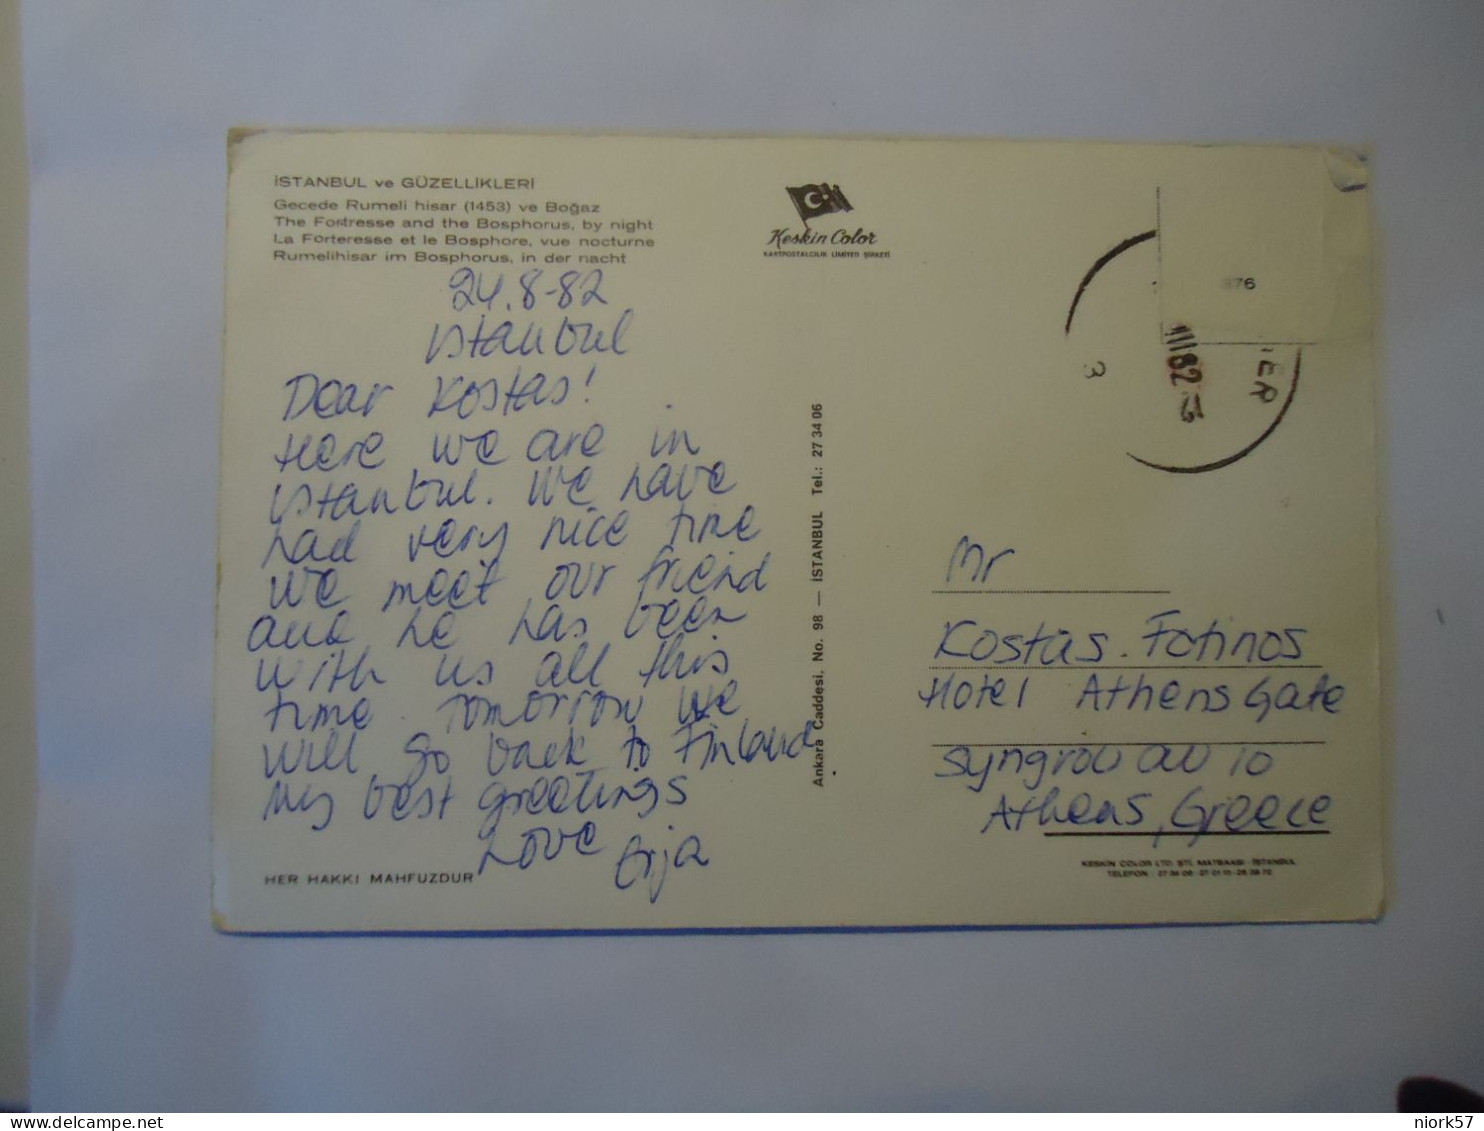 İSTANBUL ve GÜZELLİKLERİ
Gecede Rumeli hisar (1453) ve Boğaz
The Fortresse and the Bosphorus, by night
La Forteresse et le Bosphore, vue nocturne
Rumelihisar im Bosphorus, in der nacht
24.8-82
Istanbul
Dear Kostas!
Here we are in
Istanbul. We have
had very nice time
We meet our friend
and he has been
with us all this
time tomorrow we
will go back to Finland
My best greetings
Love Erja
HER HAKKI MAHFUZDUR
Ankara Caddesi. No. 98 — İSTANBUL Tel.: 27 34 06
Keskin Color
KARTPOSTALCILIK LIMITED ŞİRKETİ
376
82
3
Mr
Kostas. Fotinos
Hotel Athens Gate
Syngrou av 10
Athens, Greece
KESKIN COLOR LTD. ŞTİ. MATBAASI - İSTANBUL
niork57